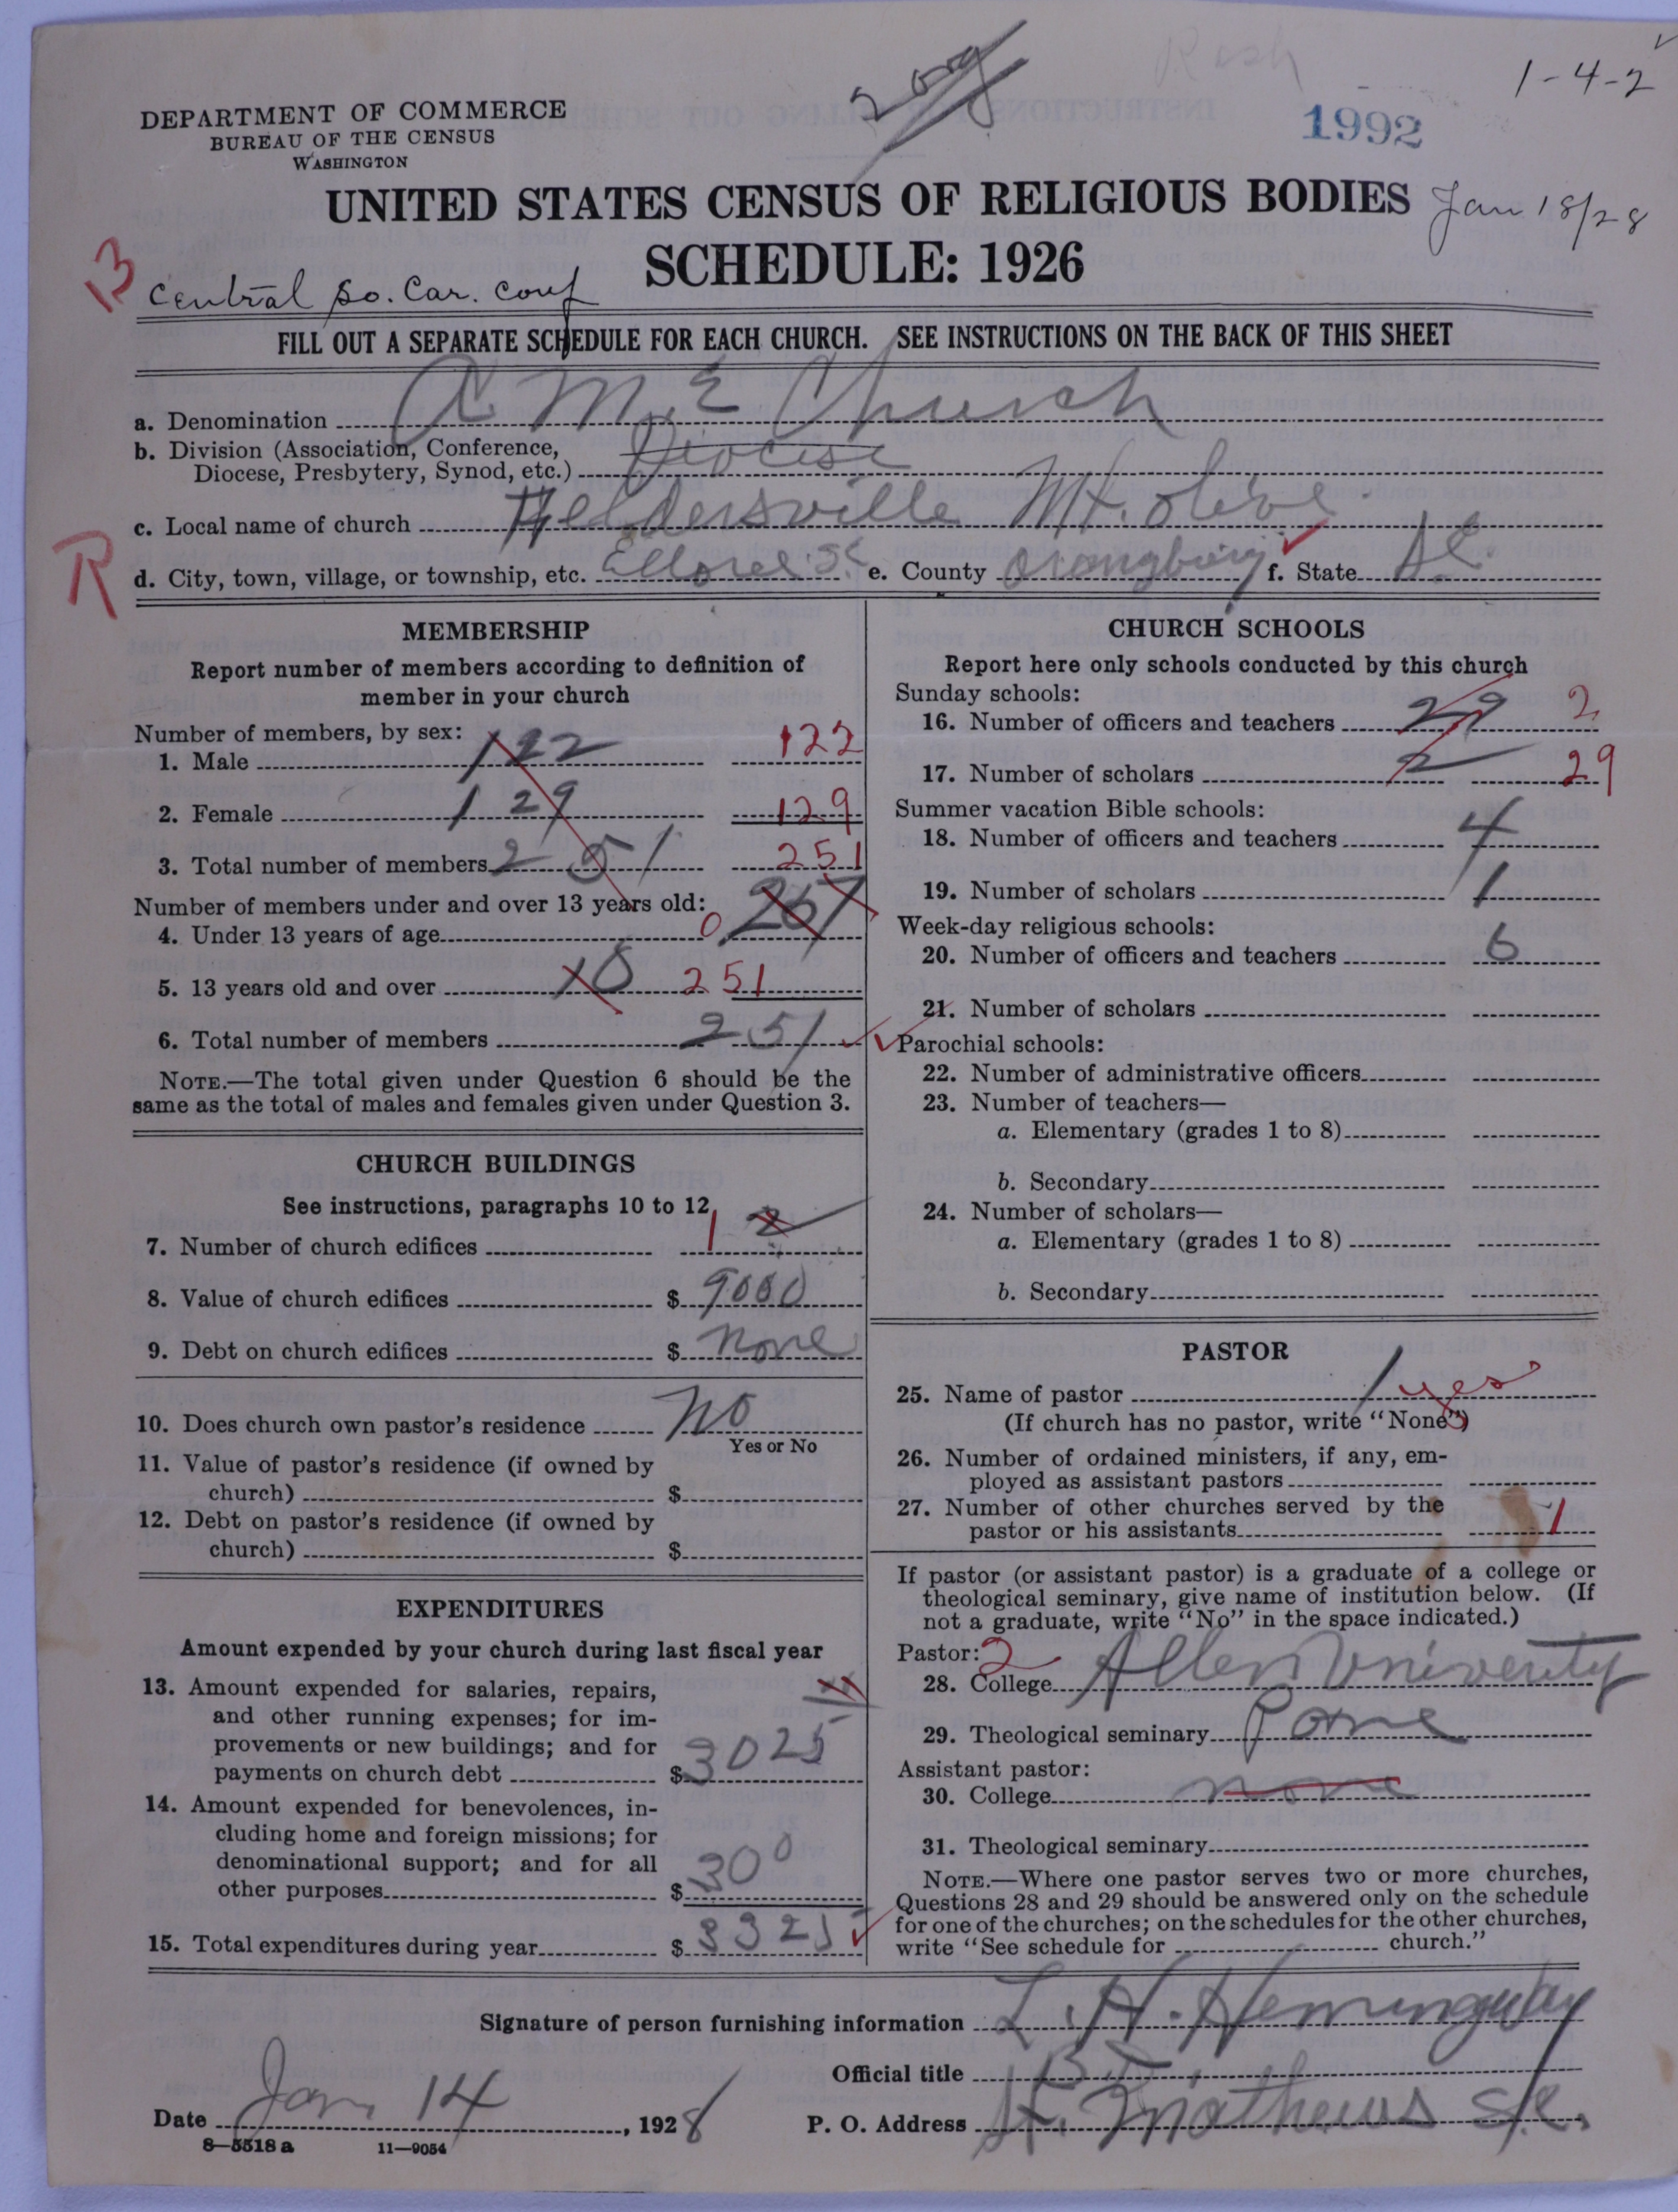 2 org
Resh
1-4-2
DEPARTMENT OF COMMERCE
BUREAU OF THE CENSUS
WASHINGTON
1992
UNITED STATES CENSUS OF RELIGIOUS BODIES
Jan 18/28
SCHEDULE: 1926
13
Central So. Car. Conf
FILL OUT A SEPARATE SCHEDULE FOR EACH CHURCH. SEE INSTRUCTIONS ON THE BACK OF THIS SHEET
a. Denomination A M. E Church
b. Division (Association, Conference,
Diocese, Presbytery, Synod, etc.) Diocise
c. Local name of church Heldersville Mt. Olive
R
d. City, town, village, or township, etc. Ellorel S.C e. County Orangburg f. State S.C.
MEMBERSHIP
Report number of members according to definition of
member in your church
Number of members, by sex:
1. Male 122 122
2. Female 129 129
3. Total number of members 251 251
Number of members under and over 13 years old:
4. Under 13 years of age 0 267
5. 13 years old and over 10 251
6. Total number of members 251
NOTE.—The total given under Question 6 should be the
same as the total of males and females given under Question 3.
CHURCH BUILDINGS
See instructions, paragraphs 10 to 12
7. Number of church edifices 1 2
8. Value of church edifices $ 9000
9. Debt on church edifices $ None
10. Does church own pastor's residence No
Yes or No
11. Value of pastor's residence (if owned by
church) $
12. Debt on pastor's residence (if owned by
church) $
EXPENDITURES
Amount expended by your church during last fiscal year
13. Amount expended for salaries, repairs,
and other running expenses; for im-
provements or new buildings; and for
payments on church debt $ 3025
14. Amount expended for benevolences, in-
cluding home and foreign missions; for
denominational support; and for all
other purposes $ 300
15. Total expenditures during year $ 3325
CHURCH SCHOOLS
Report here only schools conducted by this church
Sunday schools:
16. Number of officers and teachers 29 2
17. Number of scholars 2 29
Summer vacation Bible schools:
18. Number of officers and teachers 4
19. Number of scholars 1
Week-day religious schools:
20. Number of officers and teachers 6
21. Number of scholars
Parochial schools:
22. Number of administrative officers
23. Number of teachers—
a. Elementary (grades 1 to 8)
b. Secondary
24. Number of scholars—
a. Elementary (grades 1 to 8)
b. Secondary
PASTOR
25. Name of pastor 1 yes
(If church has no pastor, write "None")
26. Number of ordained ministers, if any, em-
ployed as assistant pastors
27. Number of other churches served by the
pastor or his assistants 1
If pastor (or assistant pastor) is a graduate of a college or
theological seminary, give name of institution below. (If
not a graduate, write "No" in the space indicated.)
Pastor: 2
28. College Allen Univerity
29. Theological seminary
Assistant pastor:
30. College none
31. Theological seminary
NOTE.—Where one pastor serves two or more churches,
Questions 28 and 29 should be answered only on the schedule
for one of the churches; on the schedules for the other churches,
write "See schedule for church."
Signature of person furnishing information L. H. Hemingway
Official title
Date Jan. 14, 1928 P. O. Address St. Mathews S.C.
8—5518 a 11—9054